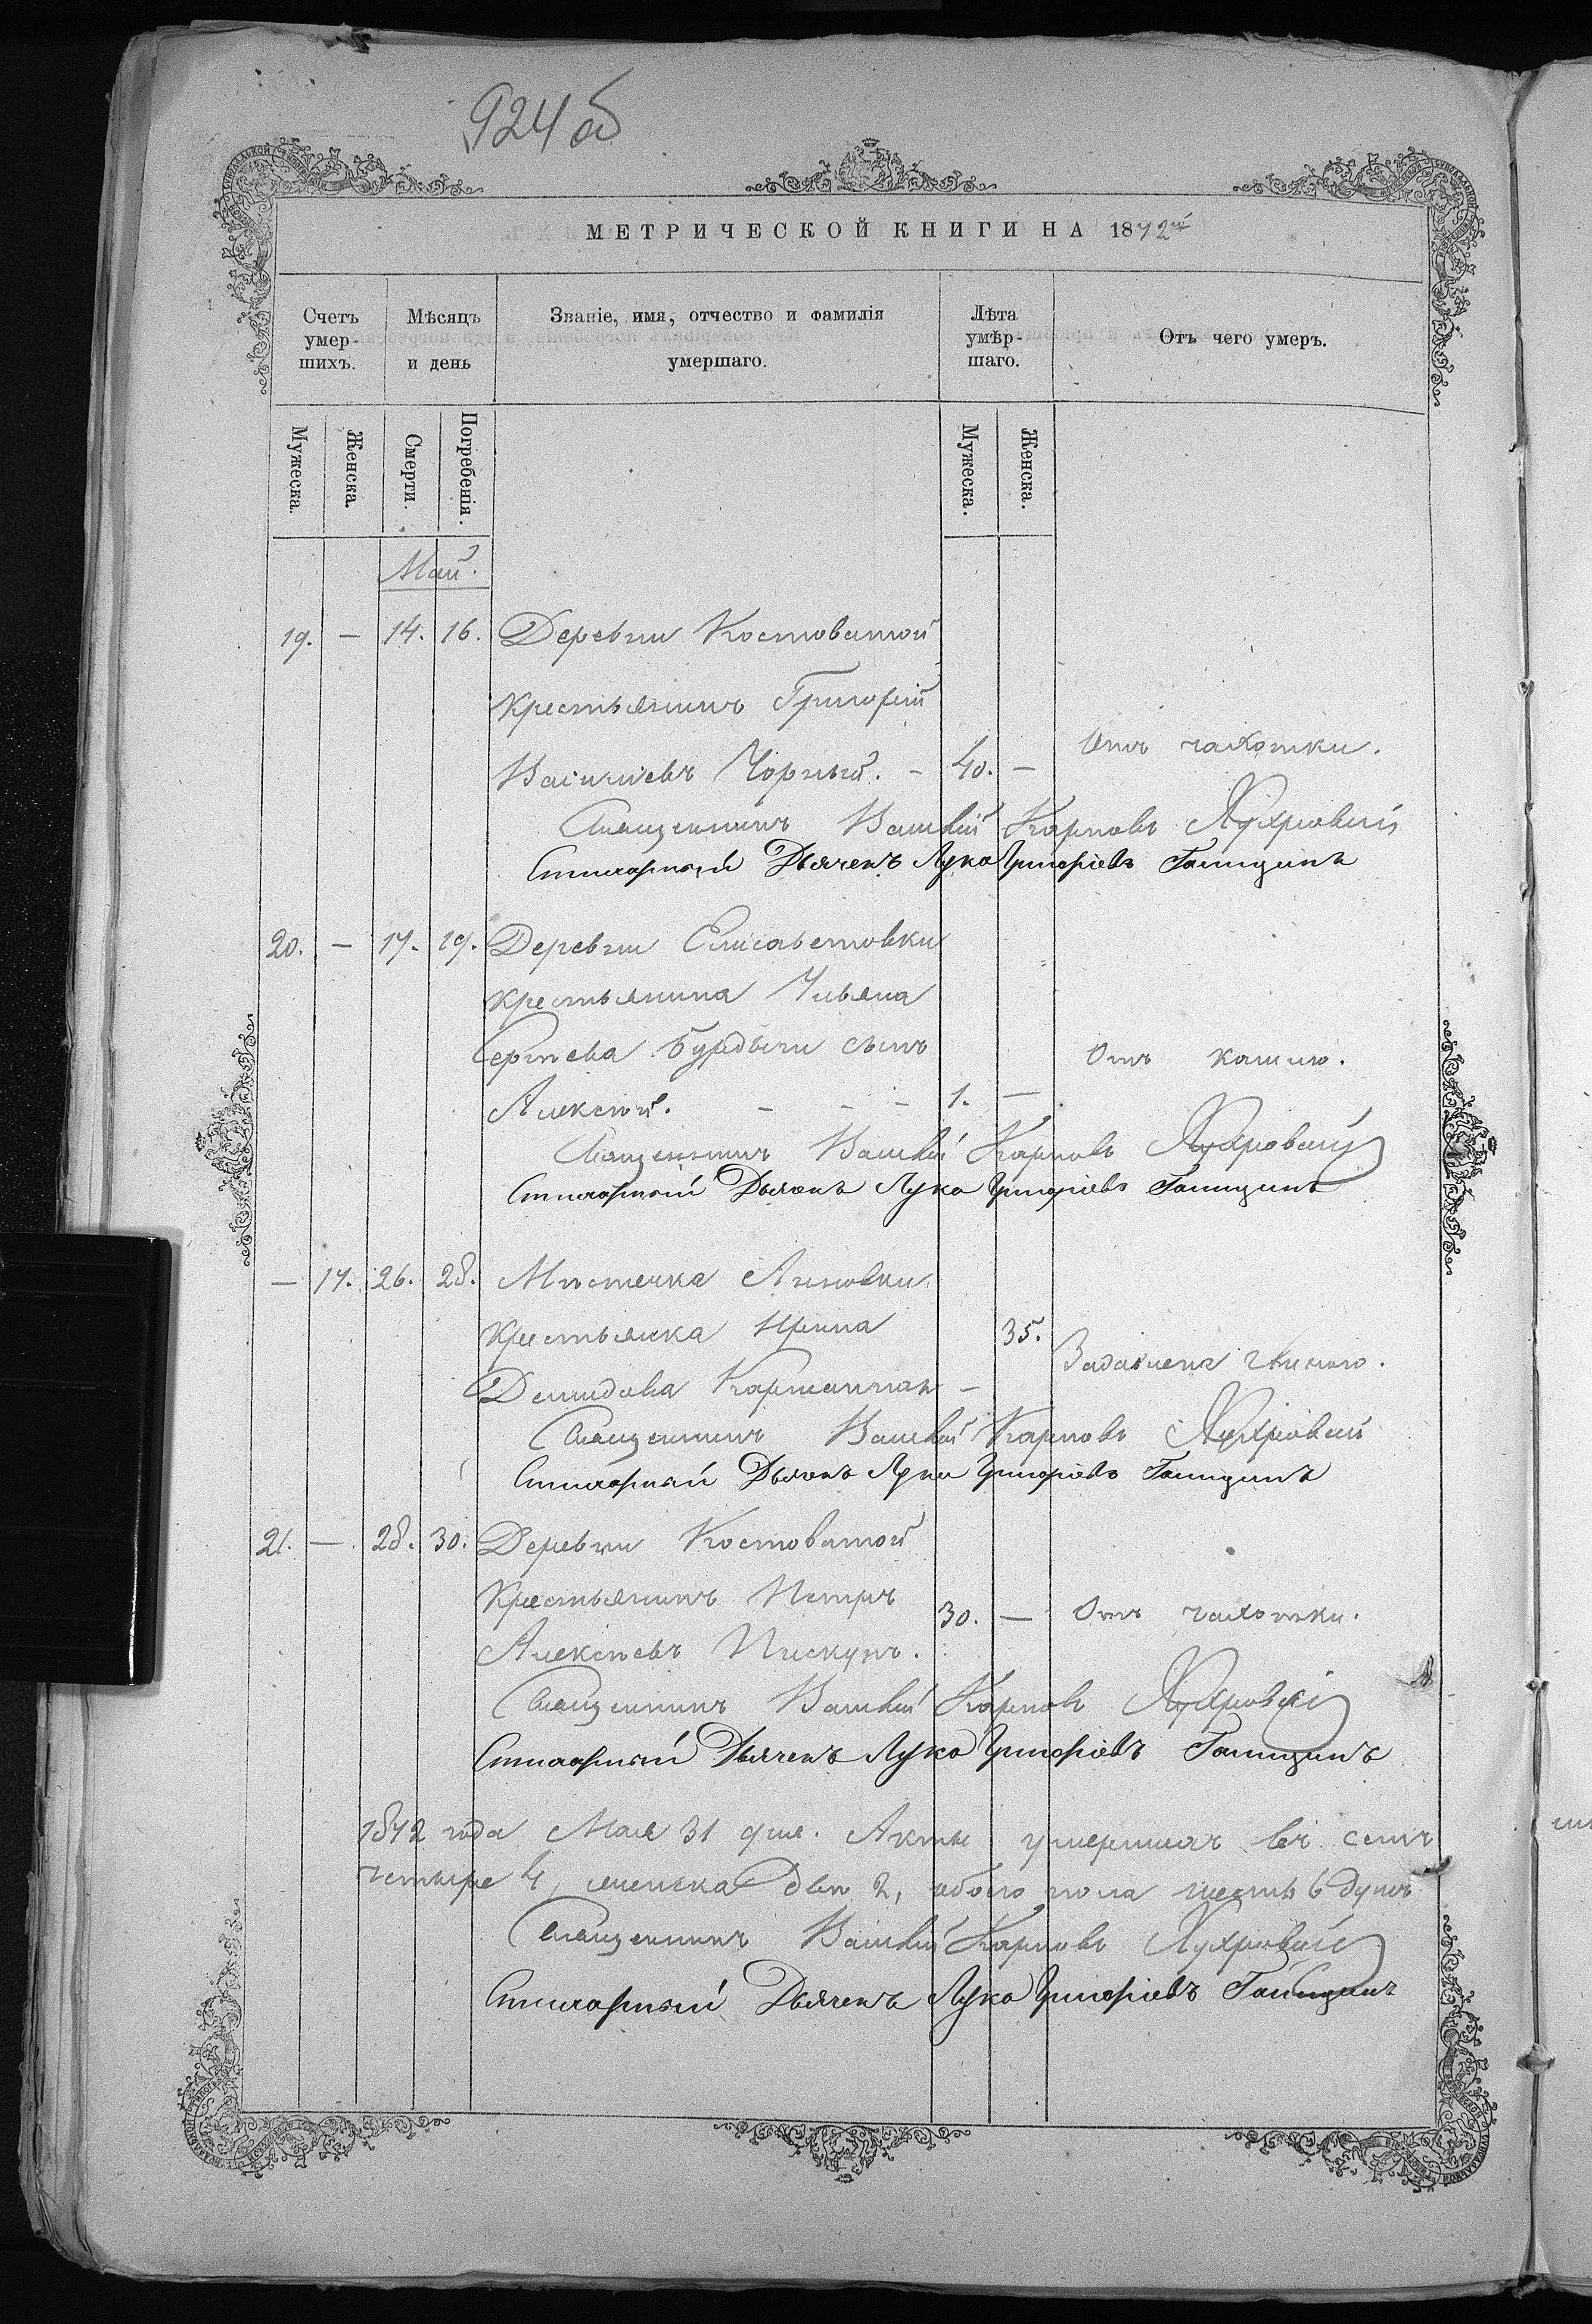 924 об
МЕТРИЧЕСКОЙ КНИГИ НА 1872й
Счетъ умер-шихъ.
Мѣсяцъ и день
Званіе, имя, отчество и фамилія умершаго.
Лѣта умѣр-шаго.
Отъ чего умеръ.
Мужеска.
Женска.
Смерти.
Погребенія.
Мужеска.
Женска.
Май.
19. — 14. 16. Деревни Костоватой
крестьянинъ Григорій
Василіевъ Чорный. - 40. — Отъ чахотки.
Священникъ Василій Карповъ
Стихарный Дьячекъ Лука Григоріевъ
20. — 17. 19. Деревни Елисаветовки
крестьянина Ульяна
Сергѣева Бурдыги сынъ Отъ кашлю.
Алексѣй. - - - 1. —
Священникъ Василій Карповъ
Стихарный Дьячекъ Лука Григоріевъ
— 17. 26. 28. Мѣстечка Анновки
крестьянка Ирина 35.
Демидова - Задавлена глиною.
Священникъ Василій Карповъ
Стихарный Дьячекъ Лука Григоріевъ
21. — 28. 30. Деревни Костоватой
Крестьянинъ Петръ 30. — Отъ чахотки.
Алексѣевъ Пискунъ.
Священникъ Василій Карповъ
Стихарный Дьячекъ Лука Григоріевъ
1872 года Мая 31 дня. Акты умершихъ
четыре 4, женска двѣ 2, обоего пола шесть 6 душъ
Священникъ Василій Карповъ
Стихарный Дьячекъ Лука Григоріевъ